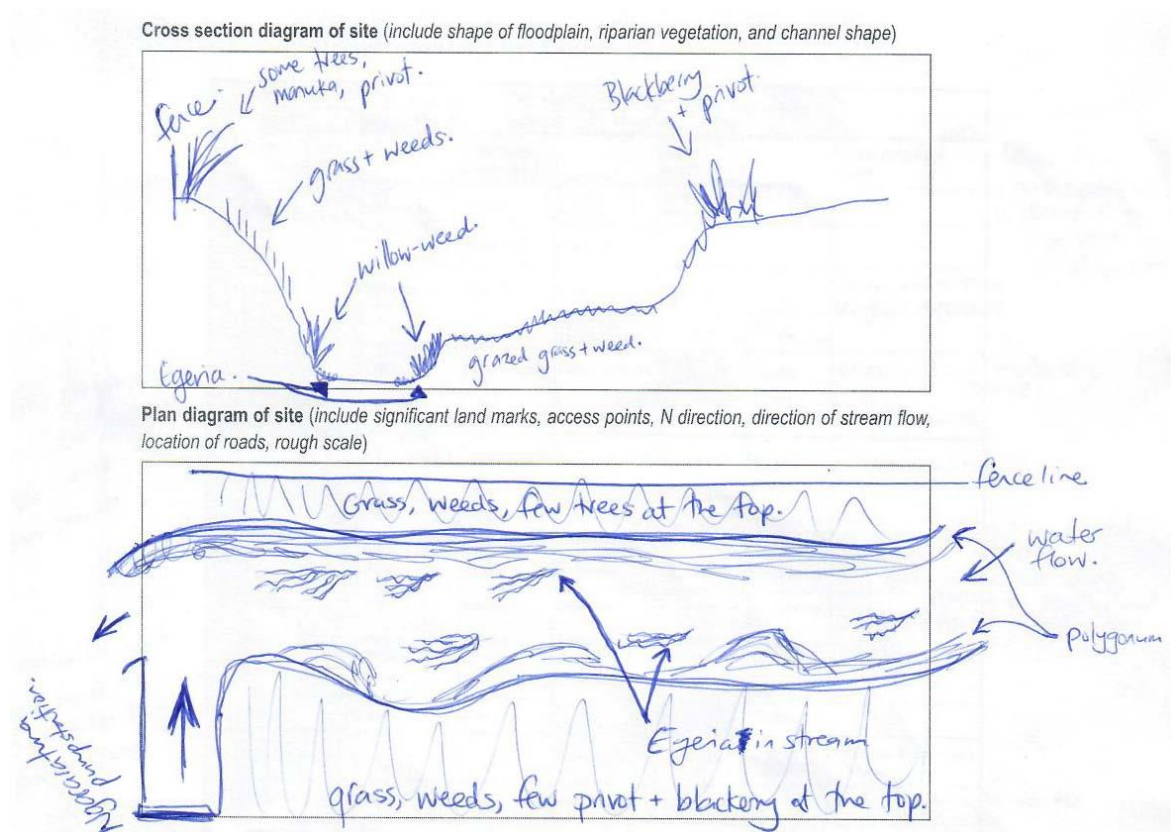 Cross section diagram of site (include shape of floodplain, riparian vegetation, and channel shape)
fence.
some trees,
manuka, privot.
grass + weeds.
willow-weed.
Blackberry
+ privot.
grazed grass + weed.
Egeria.
Plan diagram of site (include significant land marks, access points, N direction, direction of stream flow,
location of roads, rough scale)
Grass, weeds, few trees at the top.
fence line
water
flow.
polygonum
pumpstation.
Egeria in stream
grass, weeds, few privot + blackery at the top.